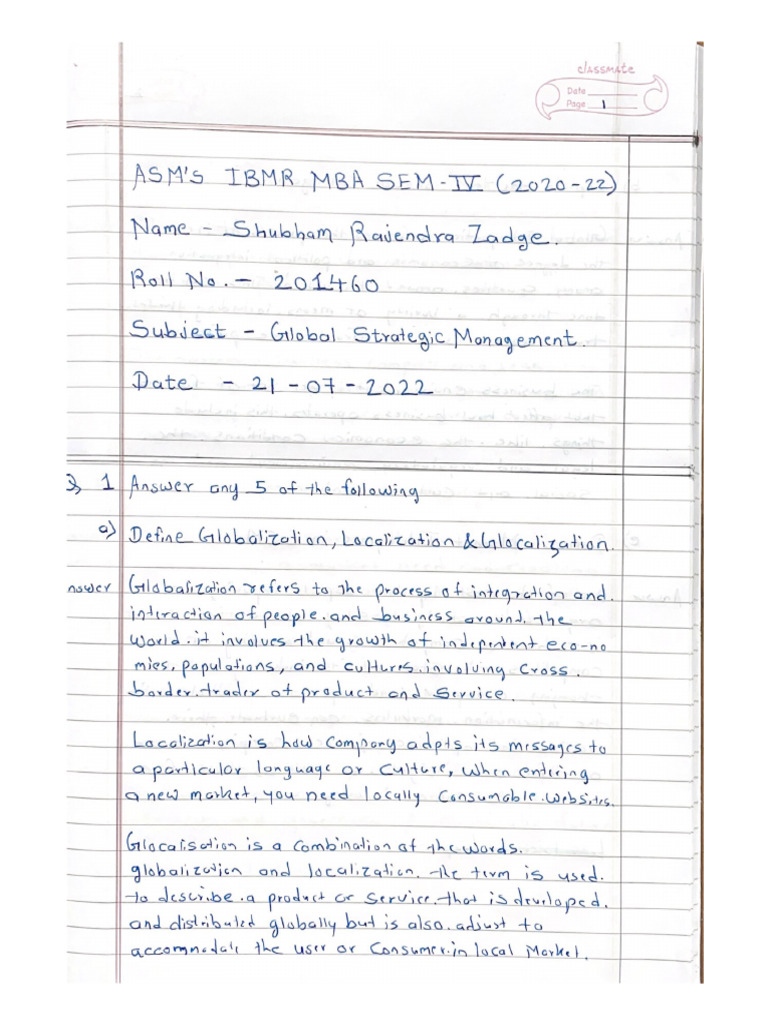 classmate
Date
Page 1
ASM's IBMR MBA SEM-IV (2020-22)
Name - Shubham Rajendra Zadge.
Roll No. - 201460
Subject - Global Strategic Management.
Date - 21-07-2022
Q 1 Answer any 5 of the following
a) Define Globalization, Localization & Glocalization.
nswer Globalization refers to the process of integration and.
interaction of people. and business around. the
world. it involves the growth of independent eco-no
mies, populations, and cultures. involving cross.
border. trader of product and service.
Localization is how company adpts its messages to
a particular language or culture, when entering
a new market, you need locally consumable. websites.
Glocalisation is a combination of the words.
globalization and localization. the term is used.
to describe. a product or service. that is developed.
and distributed globally but is also. adjust to
accommodate the user or consumer. in local market.